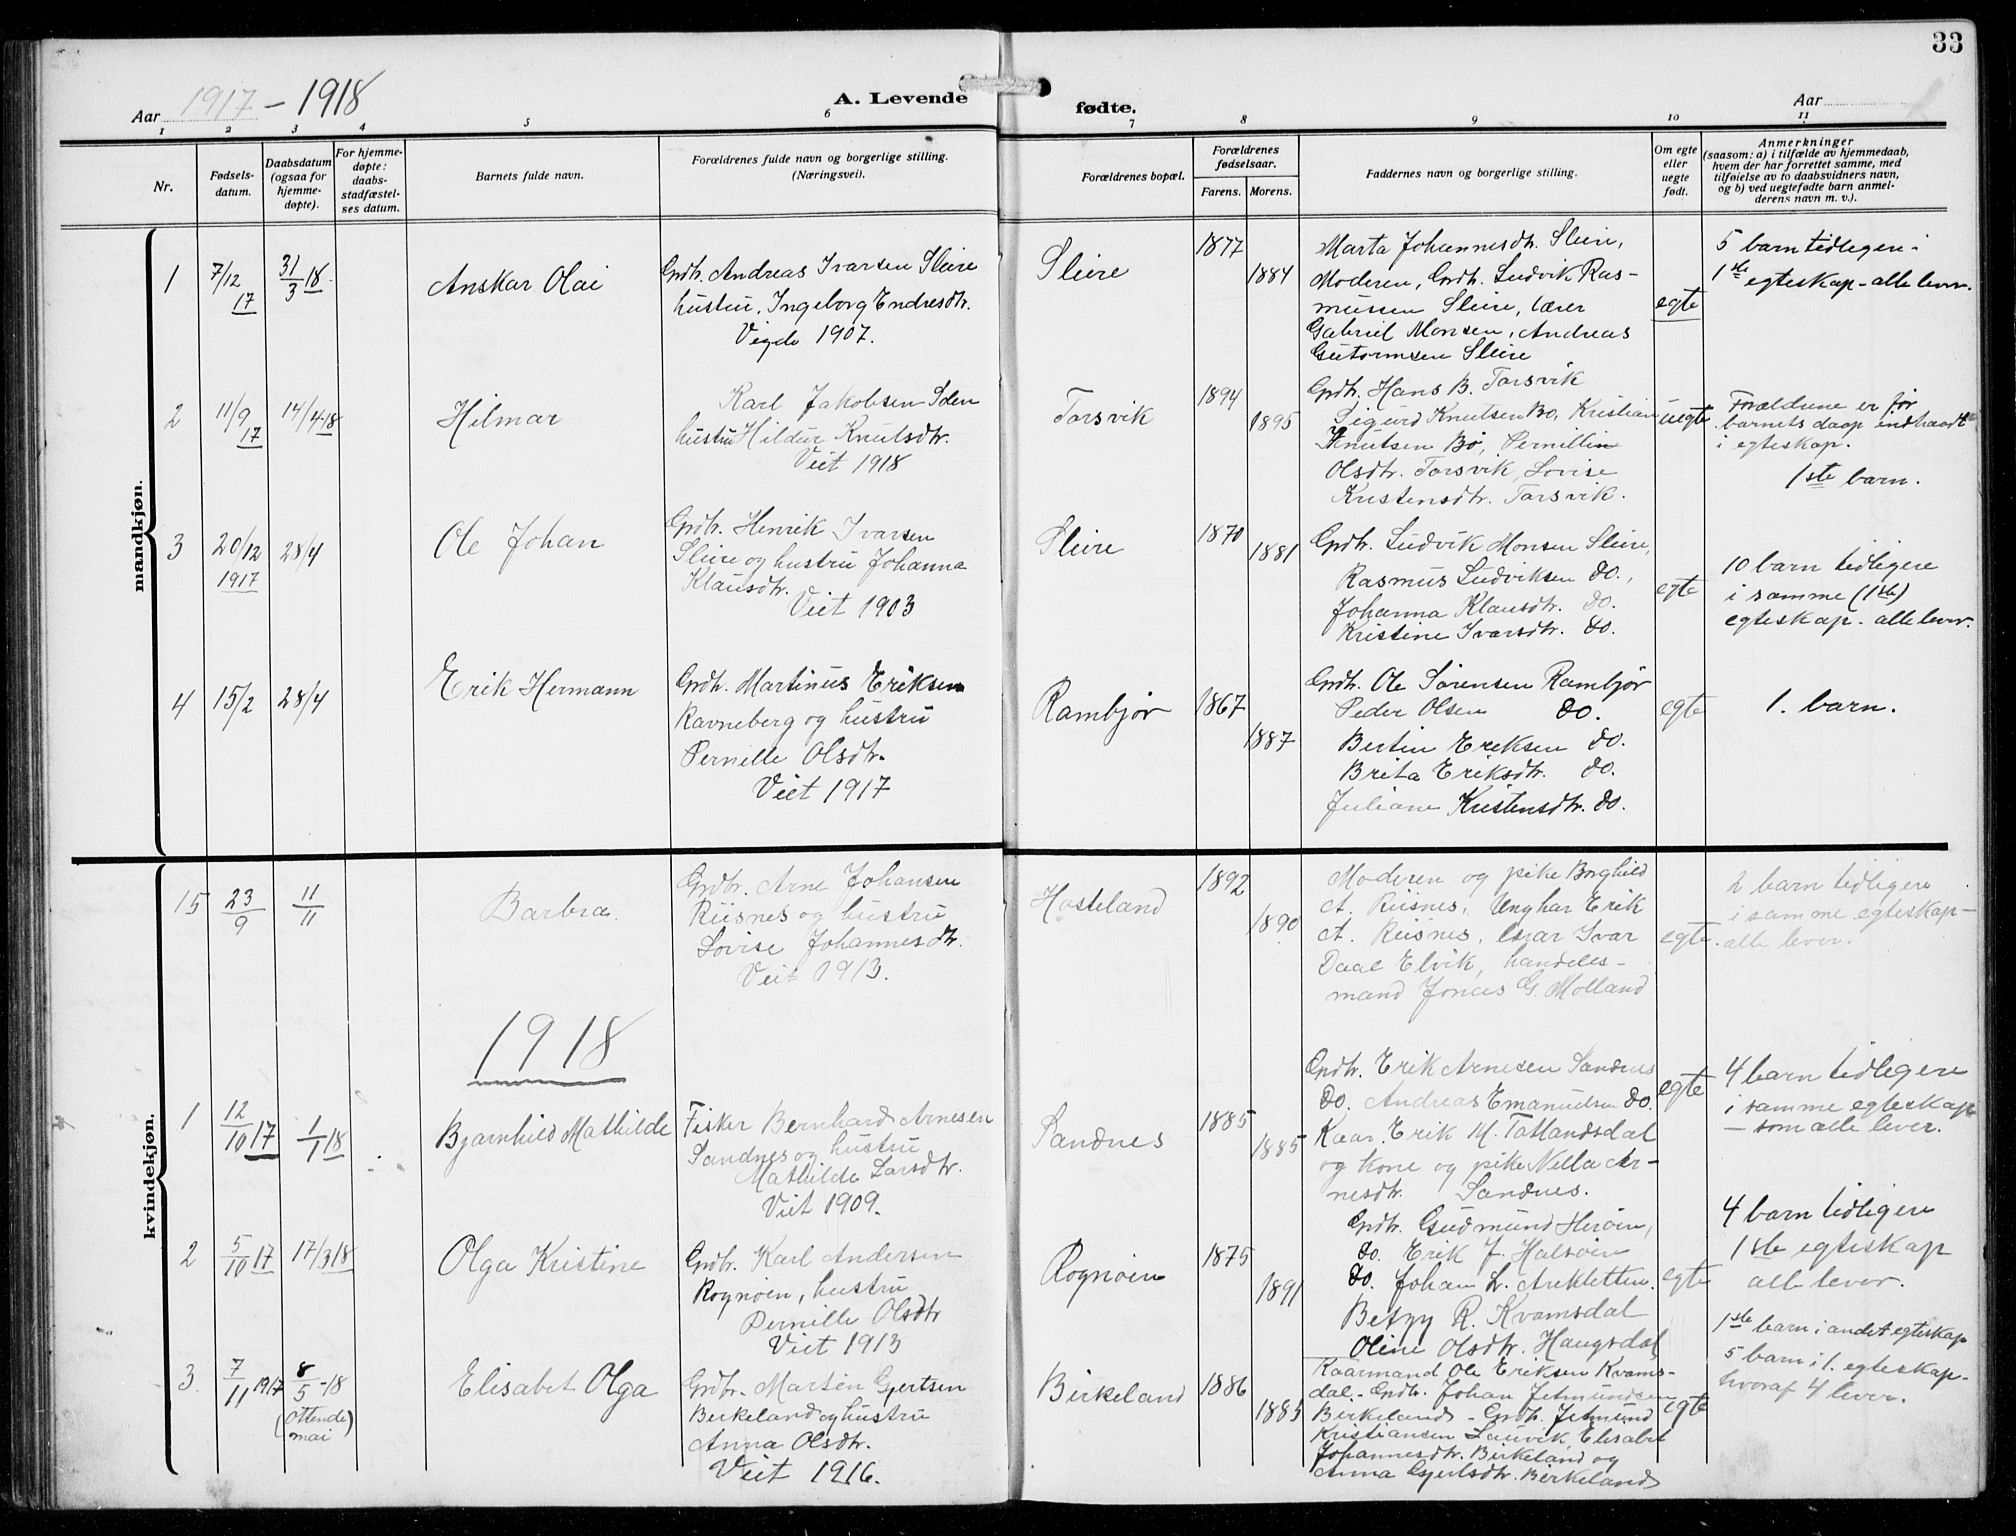 33
Aar 1917 - 1918
A. Levende fødte.
Aar
1 2 3 4 5 6 7 8 9 10 11
Nr.
Fødsels-
datum.
Daabsdatum
(ogsaa for
hjemme-
døpte).
For hjemme-
døpte:
daabs-
stadfæstel-
ses datum.
Barnets fulde navn.
Forældrenes fulde navn og borgerlige stilling.
(Næringsvei).
Forældrenes bopæl.
Forældrenes
fødselsaar.
Farens. Morens.
Faddernes navn og borgerlige stilling.
Om egte
eller
uegte
født.
Anmerkninger
(saasom: a) i tilfælde av hjemmedaab,
hvem der har forrettet samme, med
tilføielse av to daabsvidners navn,
og b) ved uegtefødte barn anmel-
derens navn m. v.).
mandkjøn.
1
7/12
17
31/3 18
Anskar Olai
Grdb. Andreas Ivarsen Sleire
hustru, Ingeborg Endresdtr.
Viede 1907.
Sleire
1877
1884
Marta Johannesdtr. Sleire,
Moderen, Grdb. Ludvik Ras-
mussen Sleire, lærer
Gabriel Monsen, Andreas
Gutormsen Sleire
egte
5 barn tidligere i
1ste egteskap - alle lever.
2
11/9
17
14/4 18
Hilmar
Karl Jakobsen Iden
hustru Hildur Knutsdtr.
Viet 1918
Torsvik
1894
1895
Grdb. Hans B. Torsvik
Sigurd Knutsen Bø, Kristian
Knutsen Bø, Pernillin
Olsdtr. Torsvik, Lovise
Kristensdtr. Torsvik.
uegte
Forældrene er før
barnets daap indtraadt
i egteskap.
1ste barn.
3
20/12
1917
28/4
Ole Johan
Grdb. Henrik Ivarsen
Sleire og hustru Johanna
Klausdtr.
Viet 1903
Sleire
1870
1881
Grdb. Ludvik Monsen Sleire,
Rasmus Ludviksen do.,
Johanna Klausdtr. do.
Kristine Ivarsdtr. do.
egte
10 barn tidligere
i samme (1ste)
egteskap. alle lever.
4
15/2
28/4
Erik Hermann
Grdb. Martinus Eriksen
Ravneberg og hustru
Pernille Olsdtr.
Viet 1917
Rambjør
1867
1887
Grdb. Ole Sørensen Rambjør
Peder Olsen do.
Bertin Eriksen do.
Brita Eriksdtr. do.
Juliane Kristensdtr. do.
egte
1. barn.
kvindekjøn.
15
23/9
11/11
Barbra
Grdbr. Arne Johansen
Risnes og hustru
Lovise Johannesdtr.
Viet 1913.
Hosteland
1892
1890
Moderen og pike Borghild
A. Risnes, Unghar Erik
A. Risnes, Ivar
Daae Elvik, handels-
mand Jonas G. Molland
egte.
2 barn tidligere
i samme egteskap -
alle lever.
1918
1
12/10 17
1/1 18
Bjarnhild Mathilde
Fisker Bernhard Arnesen
Sandnes og hustru
Mathilde Larsdtr.
Viet 1909.
Sandnes
1885
1885
Grdb. Erik Arnesen Sandnes
Do. Andreas Emanuelsen do.
Kaar. Erik M. Tatlandsdal
og kone og pike Nella Ar-
nesdtr. Sandnes.
egte
4 barn tidligere
i samme egteskap
- som alle lever.
2
5/10 17
17/3 18
Olga Kristine
Grdbr. Karl Andersen
Rognøen, hustru
Pernille Olsdtr
Viet 1913
Rognøen
1875
1891
Grdb. Gudmund Herøen,
do. Erik J. Halsøen
do. Johan L. Arekletten.
Betzy R. Kvamsdal
Oline Olsdtr. Haugsdal
egte
4 barn tidligere
1ste egteskap
alle lever.
3.
7/11 1917
8/5 -18
(ottende)
mai
Elisabet Olga
Grdbr. Martén Gjertsen
Birkeland og hustru
Anna Olsdtr.
Viet 1916.
Birkeland
1886
1885
Kaarmand Ole Eriksen Kvams-
dal - Grdb. Johan Jetmundsen
Birkeland - Grdb. Jetmund
Kristiansen Lauvik Elisabet
Johannesdtr. Birkeland og
Anna Gjertsdtr. Birkeland
egte
1ste barn i andet egteskap
5 barn i 1. egteskap.
hvoraf 4 lever.